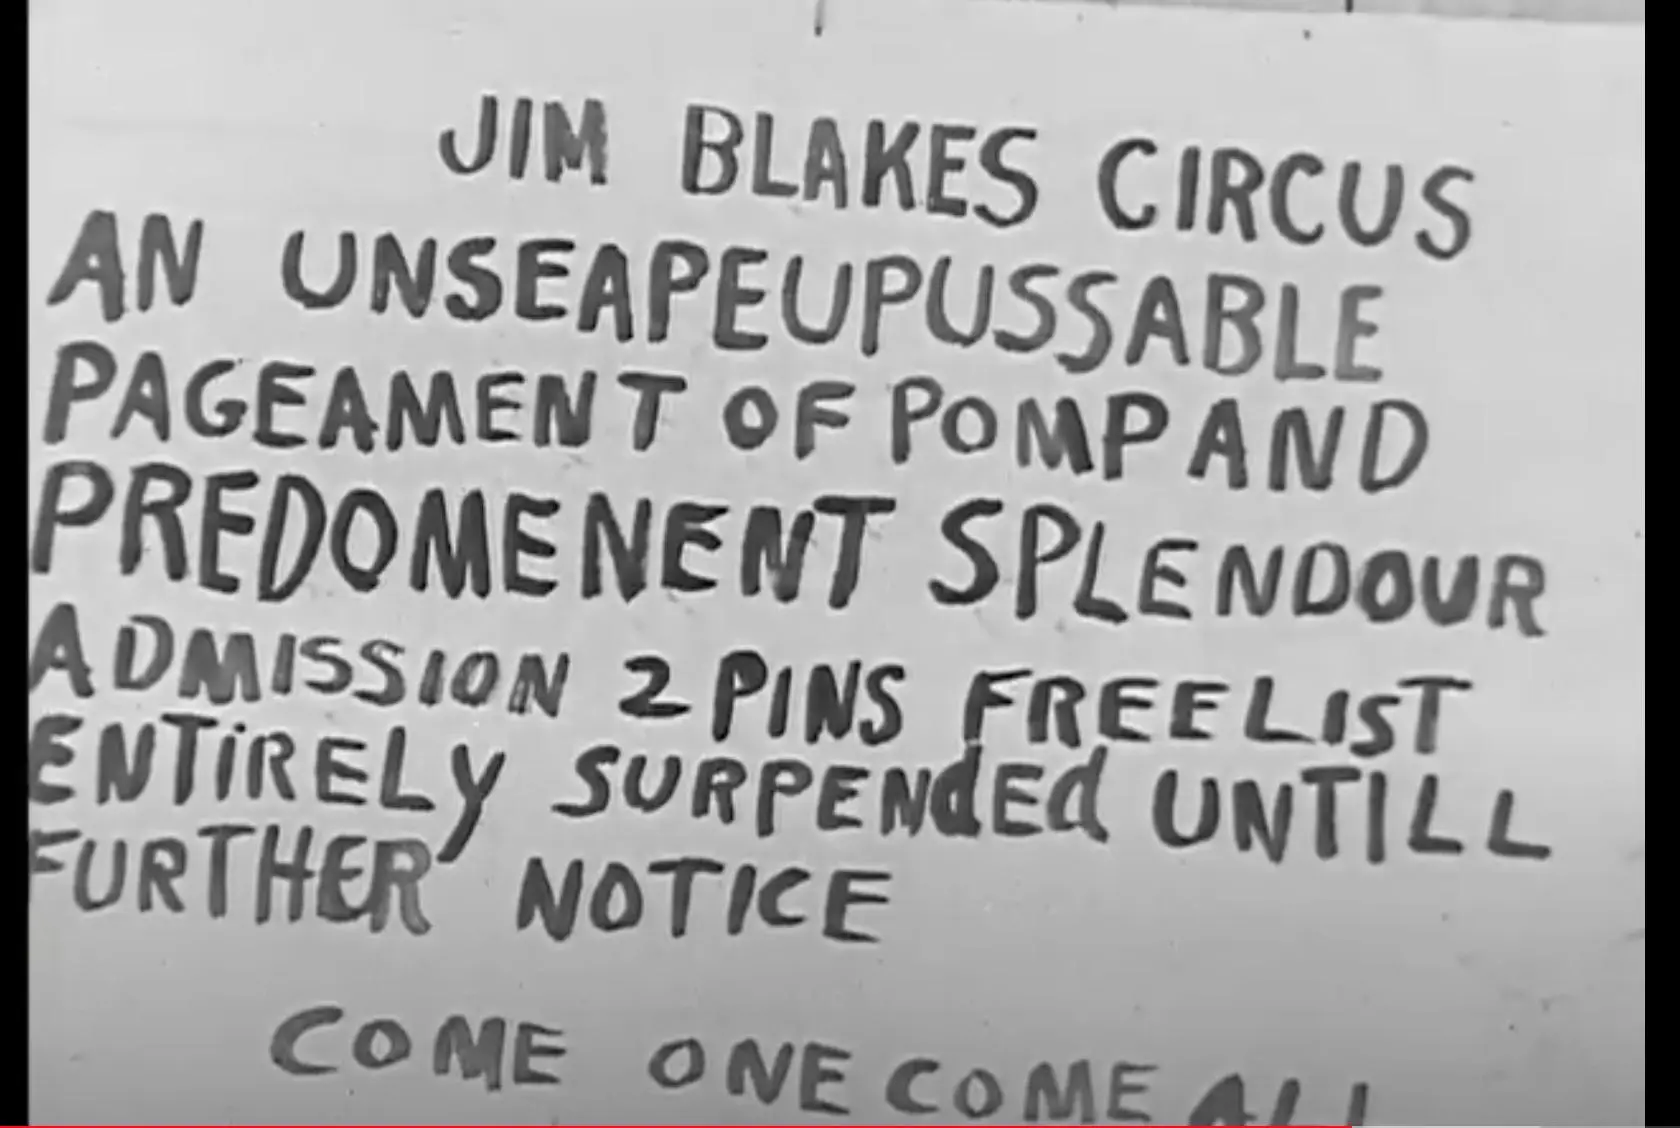 JIM BLAKES CIRCUS
AN UNSEAPEUPUSSABLE
PAGEAMENT OF POMP AND
PREDOMENENT SPLENDOUR
ADMISSION 2 PINS FREE LIST
ENTiRELy SURPENdEd UNTILL
FURTHER NOTICE
COME ONE COME ALL